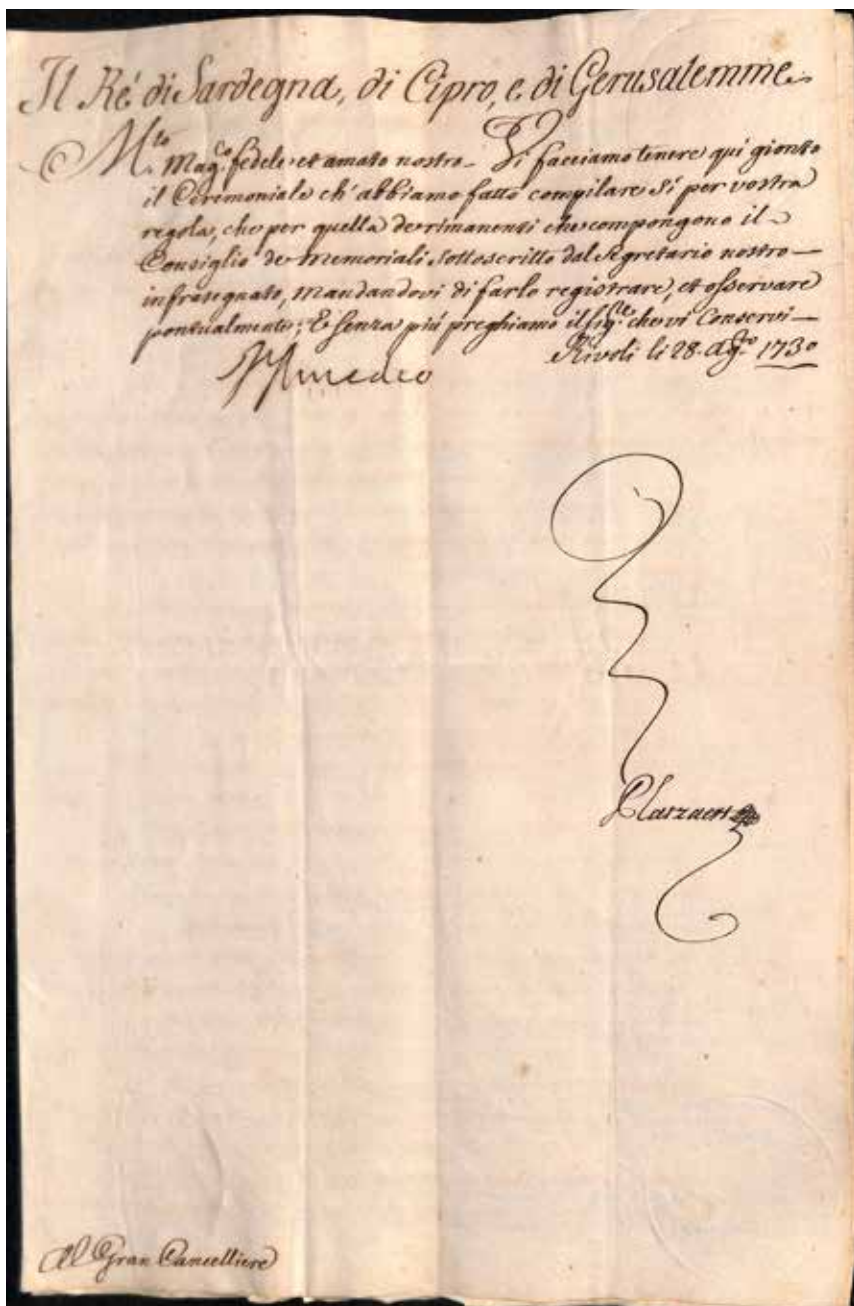 Il Ré di Sardegna, di Cipro, e di Gerusalemme
M.to Mag.co fedele et amato nostro. Vi facciamo tenere qui gionto
il Ceremoniale ch'abbiamo fatto compilare sí per vostra
regola, che per quella de rimanenti che compongono il
Consiglio de Memoriali sottoscritto dal Segretario nostro
infrasegnato, mandandovi di farlo registrare, et osservare
pontualmente; E senza piú preghiamo il sig.re che vi Conservi
Rivoli li 28. Ag.to 1730
VAmedeo
Al Gran Cancelliere